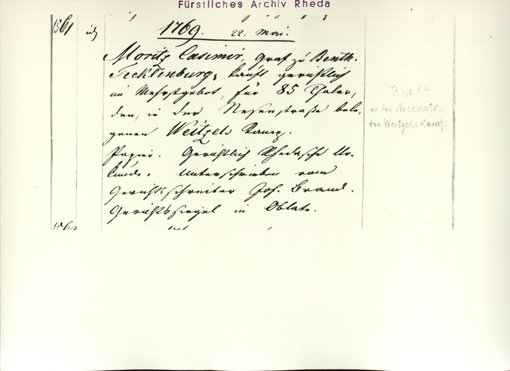 Fürstliches Archiv Rheda
1561 1769. 22. Mai.
Moritz Casimir, Graf zu Benth.
Tecklenburg, kauft gerichtlich
im Mehrstgebot, für 85 Thaler,
den, in der Nesenstraße bele-
genen Weitzels Kamp.
Papier. Gerichtlich Rhedasche Ur-
kunde. Unterschrieben vom
Gerichtsschreiber Joh. Brand.
Gerichtssiegel in Oblate.
Rheda
an der
den Weitzels Kamp